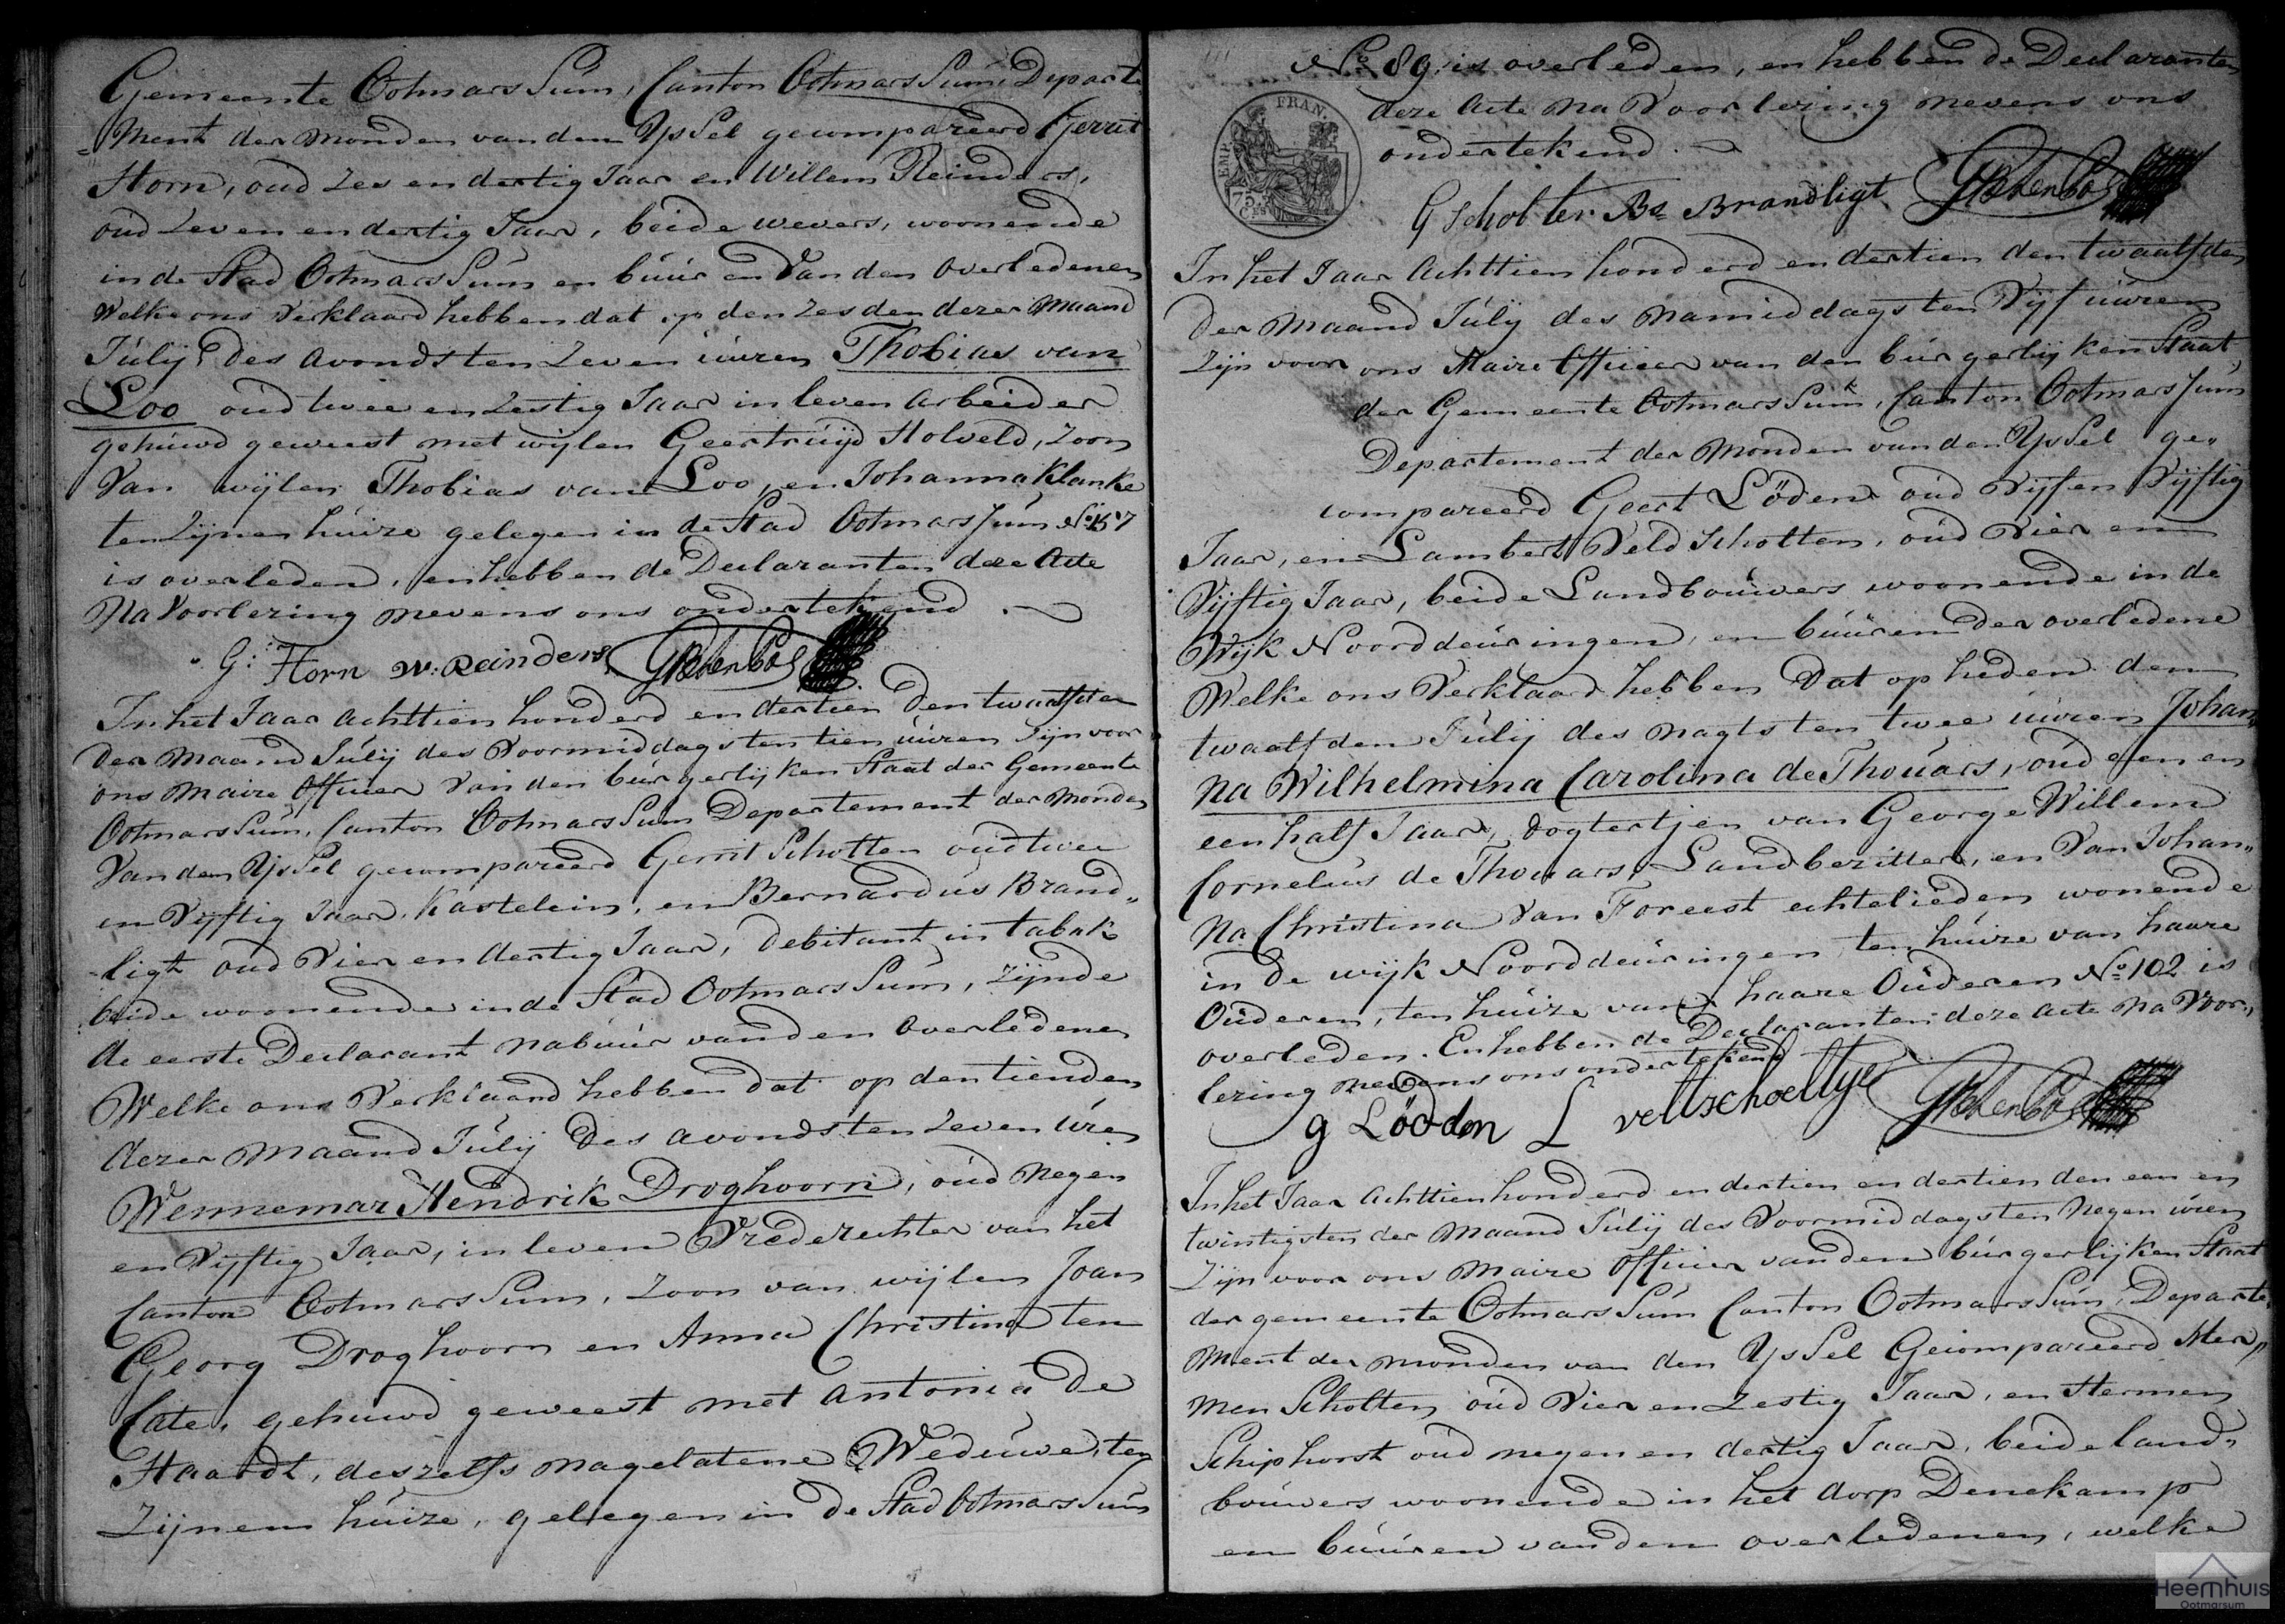 Gemeente Ootmarssum, Canton Ootmarssum, Departe
=ment der monden van den Yssel gecompareerd Gerrit
Horn, oud zes en dertig Jaar en Willem Reinders,
oud zeven en dertig Jaar, beide wevers, woonende
in de Stad Ootmarssum en buuren van den Overledenen
Welke ons verklaard hebben dat op den zesden dezer maand
Julij des avonds ten zeven uuren Thobias van
Loo oud twee en zestig Jaar in leven Arbeider
gehuwd geweest met wijlen Geertruijd Holveld, zoon
van wijlen Thobias van Loo, en Johanna Klanke
ten Zijnen huize gelegen in de Stad Ootmarssum No
is overleden, en hebben de Declaranten deze Acte
na voorlezing nevens ons ondertekend.
G: Horn W: Reinders
In het Jaar achttien honderd en dertien den twaalfden
der maand Julij des voormiddags ten tien uuren Zijn voor
ons maire Officier van den burgerlijken Staat der Gemeente
Ootmarssum, Canton Ootmarssum Departement der monden
van den Yssel gecompareerd Gerrit Scholten oud twee
en vijftig Jaar, Kastelein, en Bernardus Brand„
=ligt oud vier en dertig Jaar, debitant in tabak
beide woonende in de Stad Ootmarssum, zijnde
de eerste Declarant nabuur van den overledenen
Welke ons verklaard hebben dat op den tienden
dezer maand Julij des avonds ten zeven uren
Wennemar Hendrik Droghoorn, oud negen
en vijftig Jaar, in leven Vrederechter van het
Canton Ootmarssum, zoon van wijlen Joan
Georg Droghoorn en Anna Christina ten
Cate, gehuwd geweest met Antonia de
Haardt, deszelfs nagelatene Weduwe, ten
Zijnen huize, gelegen in de Stad Ootmarssum
No 89, is overleden, en hebben de Declaranten
deze Acte na voorlezing nevens ons
ondertekend.
EMP. FRAN.
75.
Ces
G Scholten Bs Brandligt
In het Jaar Achttien honderd en dertien den twaalfden
der maand Julij des namiddags ten vijf uuren
Zijn voor ons Maire Officier van den burgerlijken Staat
der Gemeente Ootmarssum, Canton Ootmarssum
Departement der monden van den Yssel ge„
compareerd Geert Löden oud vijf en vijftig
Jaar, en Lambert Veldscholten, oud vier en
vijftig Jaar, beide Landbouwers woonende in de
Wijk Noorddeuringen, en buuren der overledene
Welke ons verklaard hebben dat op heden den
twaalfden Julij des nagts ten twee uuren Johan„
na Wilhelmina Carolina de Thouars, oud een en
een half Jaar, dogtertjen van George Willem
Cornelius de Thouars, Landbezitter, en van Johan„
na Christina van Foreest echtelieden wonende
in de wijk Noorddeuringen ten huize van haare
Ouderen, ten huize van haare Ouderen No 102 is
overleden. En hebben de Declaranten deze Acte na voor„
lezing nevens ons ondertekend
g Lödden L veltscholtye
In het Jaar Achttienhonderd en dertien en dertien den een en
twintigsten der maand Julij des voormiddags ten negen uren
Zijn voor ons Maire Officier van den burgerlijken Staat
der gemeente Ootmarssum Canton Ootmarssum, Departe„
ment der monden van den Yssel Gecompareerd Her„
men Scholten oud vier en zestig Jaar, en Hermen
Schiphorst oud negen en dertig Jaar, beide land„
bouwers woonende in het dorp Denekamp
en buuren van den overledenen, welke
Heemhuis
Ootmarsum